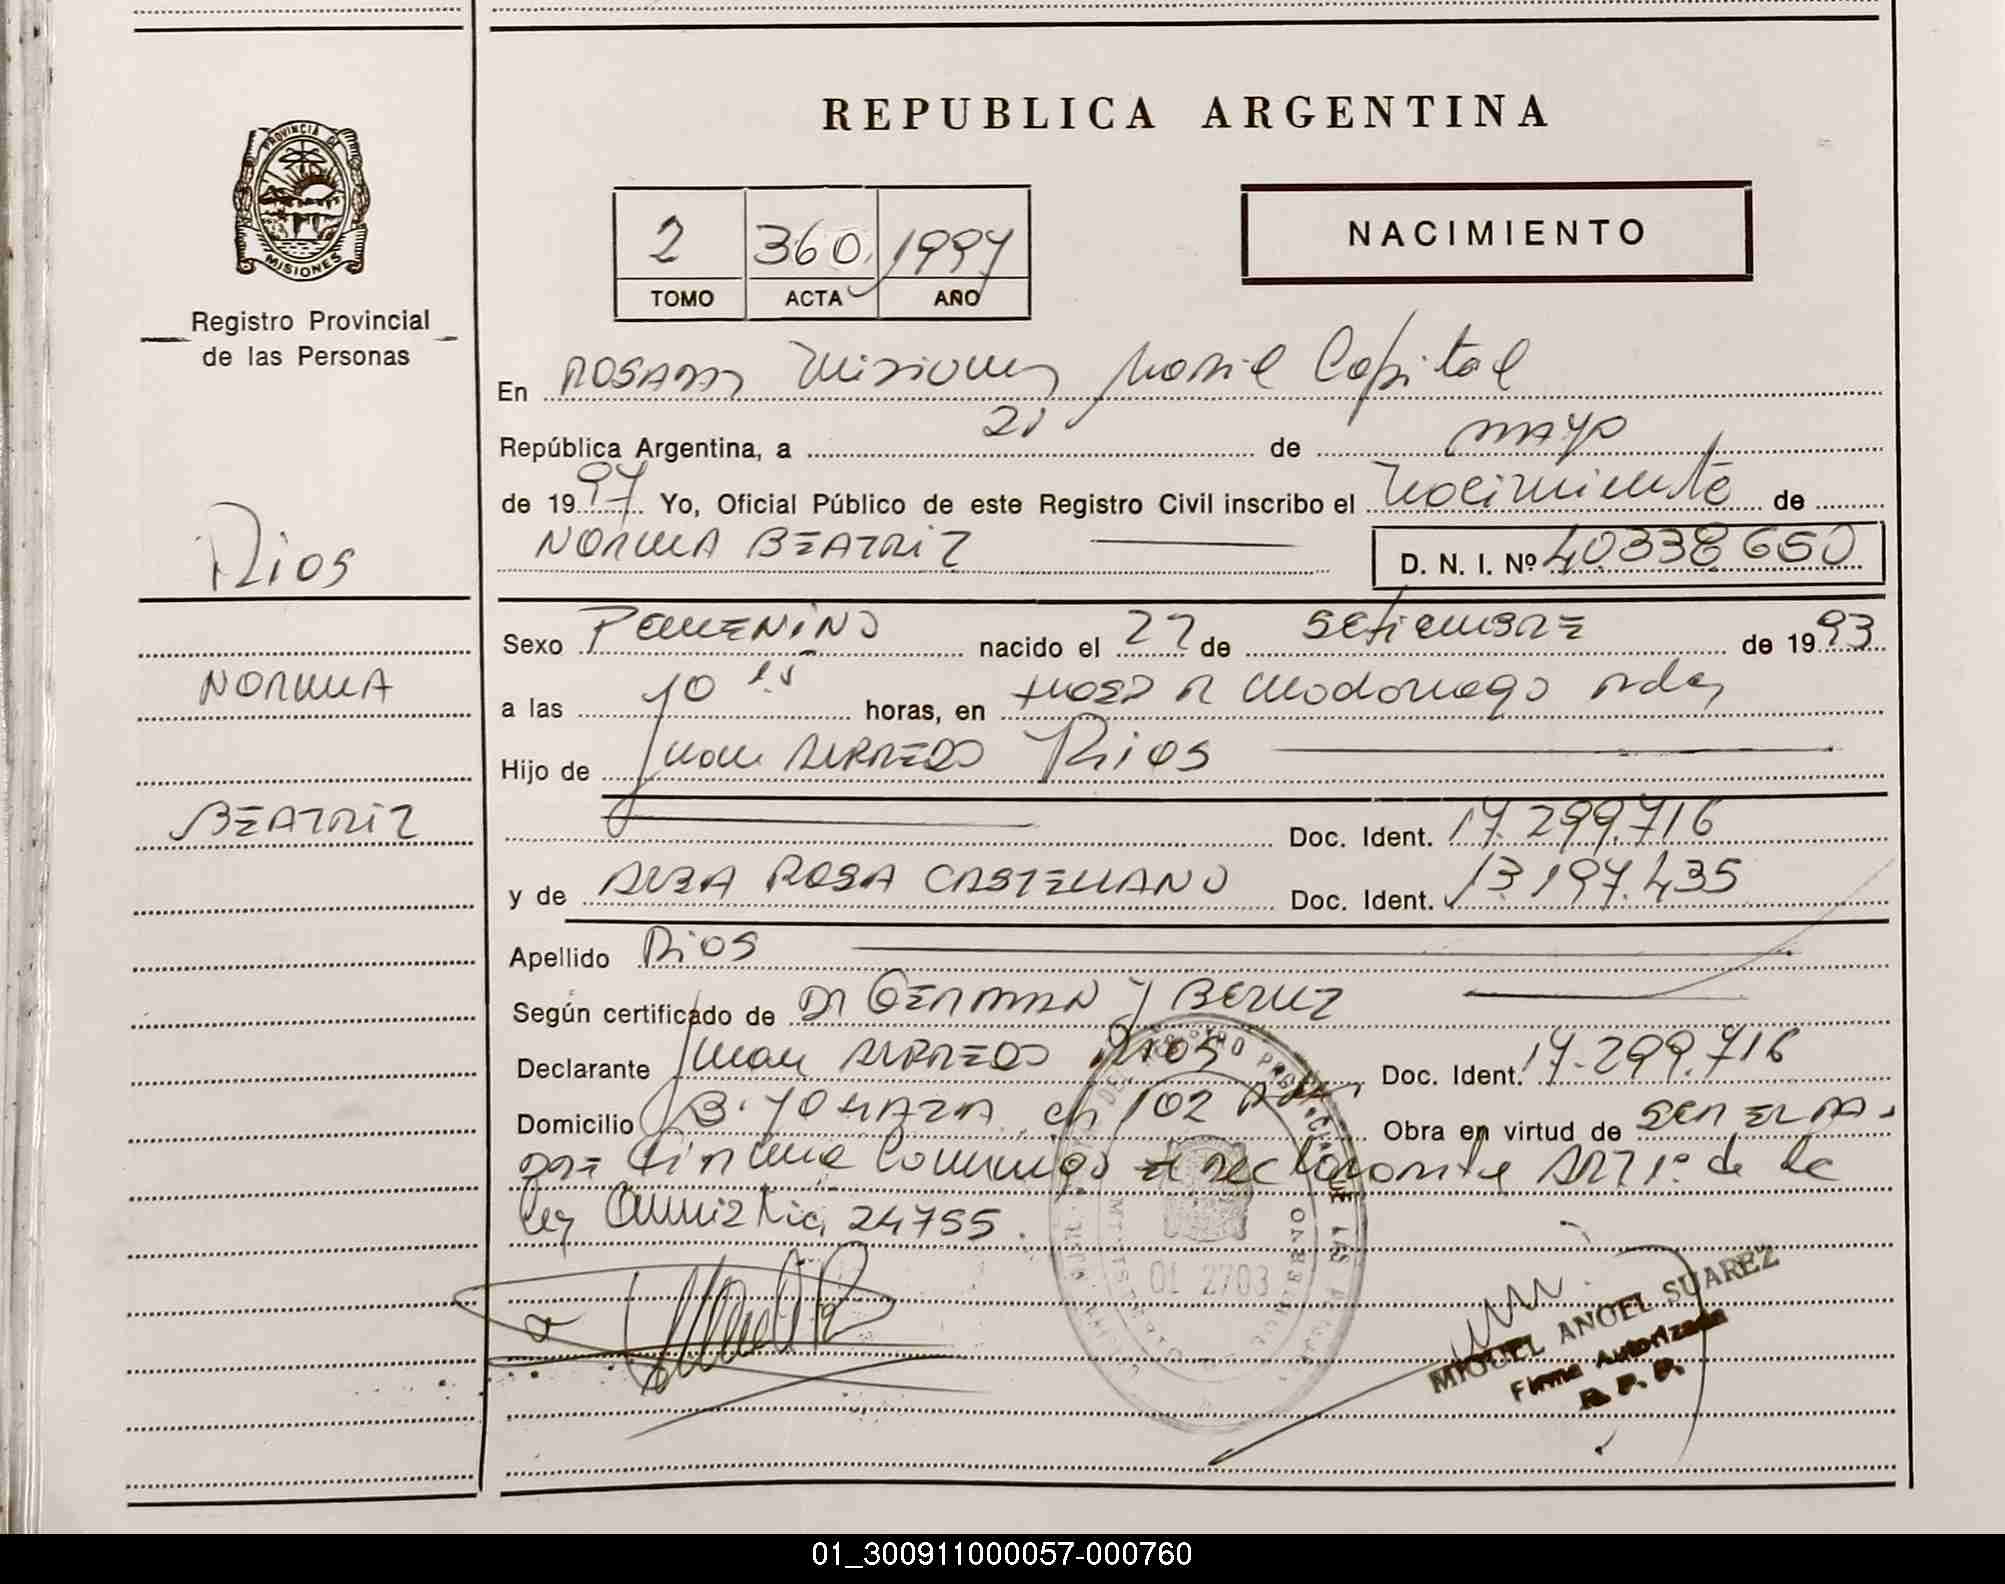 REPUBLICA ARGENTINA
PROVINCIA DE
MISIONES
Registro Provincial
de las Personas
2 360 1997
TOMO ACTA AÑO
NACIMIENTO
En Posadas Misiones Capital
República Argentina, a 21 de mayo
de 1997 Yo, Oficial Público de este Registro Civil inscribo el Nacimiento de
NORMA BEATRIZ D. N. I. Nº 40338650
Rios
NORMA
BEATRIZ
Sexo FEMENINO nacido el 27 de SETIEMBRE de 1993
a las 10 hs horas, en
Hijo de Juan ALFREDO Rios
Doc. Ident. 17.299.716
y de ALBA ROSA CASTELLANO Doc. Ident. 13.197.435
Apellido Rios
Según certificado de DR GERMAN
Declarante Juan ALFREDO RIOS Doc. Ident. 17.299.716
Domicilio ch 102 Obra en virtud de SER EL PA-
DRE firma conmigo el declarante ART 1º de la
ley Amnistia 24755.
01 2703
MIGUEL ANGEL SUAREZ
Firma Autorizada
R. P. P.
01_300911000057-000760